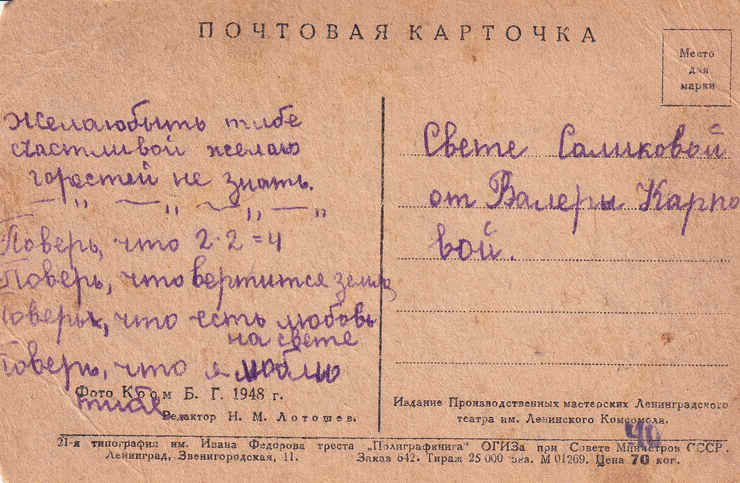 ПОЧТОВАЯ КАРТОЧКА
Место
для
марки
Желаюбыть тибе
счастливой желаю
горестей не знать.
— „ — „ — „ — „
Поверь, что 2·2=4
Поверь, что вертится земля
Поверь, что есть любовь
на свете
Поверь, что я люблю
тибе
Свете Саликовой
от Валеры Карпо
вой.
Фото Кром Б. Г. 1948 г.
Редактор Н. М. Лотошев.
Издание Производственных мастерских Ленинградского
театра им. Ленинского Комсомола.
40
21-я типография им. Ивана Федорова треста „Полиграфкнига" ОГИЗа при Совете Министров СССР.
Ленинград, Звенигородская, 11. Заказ 642. Тираж 25 000 экз. М 01269. Цена 70 коп.